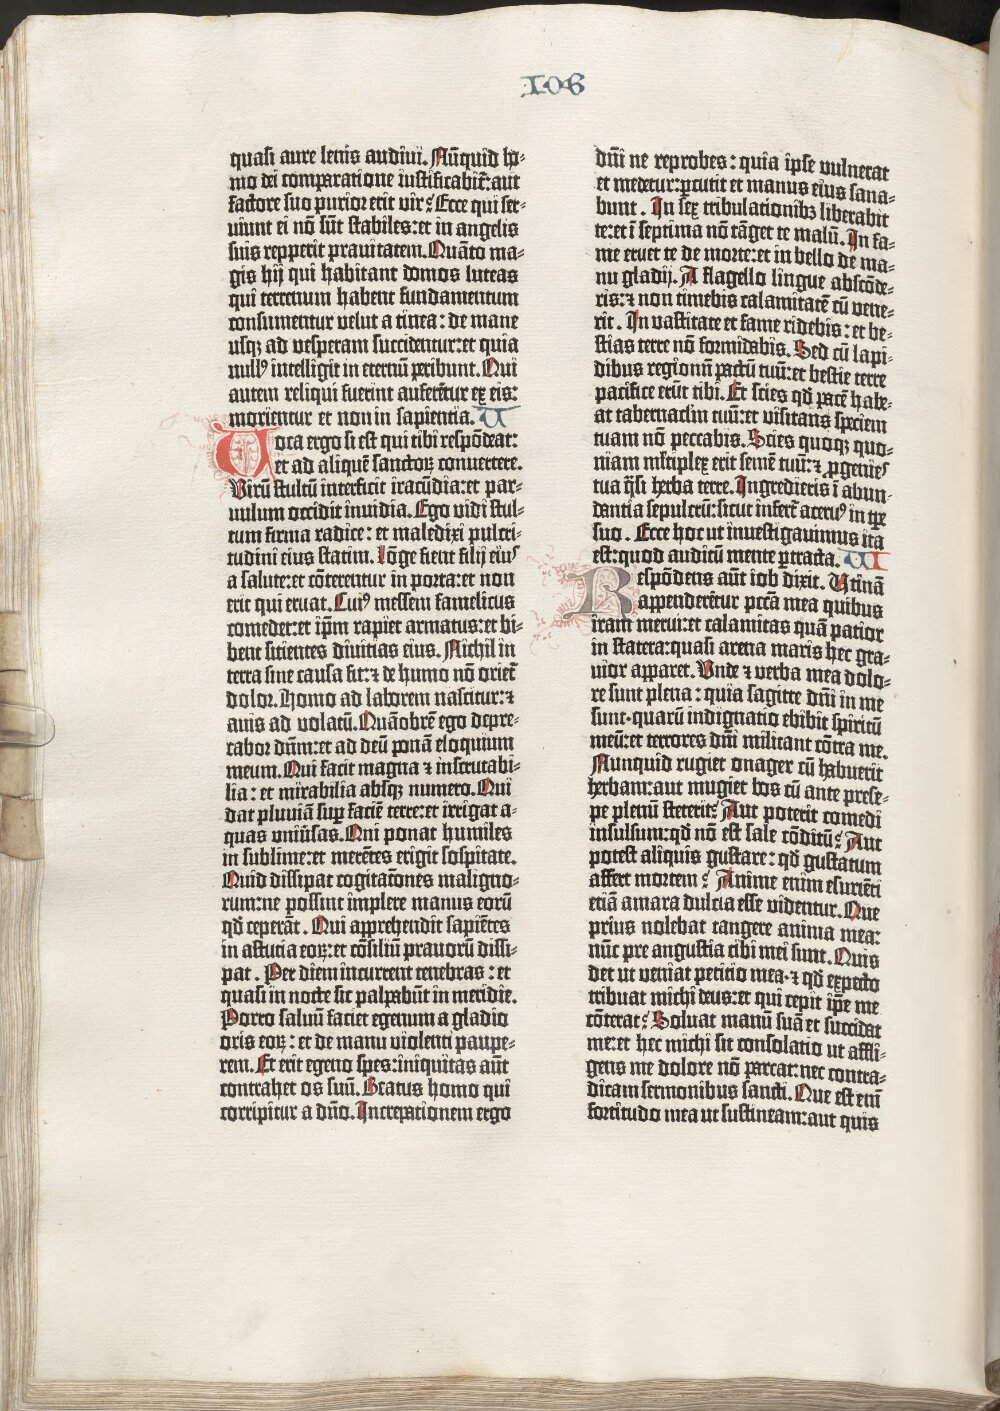 IOB
quasi aure lenis audivi. Nũquid ho-
mo dei comparatione iustificabit̃: aut
factore suo purior erit vir? Ecce qui ser-
viunt ei nõ sũt stabiles: et in angelis
suis repperit pravitatem. Quãto ma-
gis hij qui habitant domos luteas
qui terrenum habent fundamentum
consumentur velut a tinea: de mane
usqꝫ ad vesperam succidentur: et quia
nullꝰ intelligit in eternũ peribunt. Qui
autem reliqui fuerint auferẽtur ex eis:
morientur et non in sapientia. V
Voca ergo si est qui tibi respõdeat:
et ad aliquẽ sanctoꝝ convertere.
Virũ stultũ interficit iracũdia: et par-
vulum occidit invidia. Ego vidi stul-
tum firma radice: et maledixi pulcri-
tudini eius statim. Lõge fient filij eiꝰ
a salute: et cõterentur in porta: et non
erit qui eruat. Cuiꝰ messem famelicus
comedet: et ip̃m rapiet armatus: et bi-
bent sitientes divitias eius. Nichil in
terra sine causa fit: ⁊ de humo nõ oriet̃
dolor. Homo ad laborem nascitur: ⁊
avis ad volatũ. Quãobrẽ ego depre-
cabor dñm: et ad deũ ponã eloquium
meum. Qui facit magna ⁊ inscrutabi-
lia: et mirabilia absqꝫ numero. Qui
dat pluviã suꝑ faciẽ terre: et irrigat a-
quas uniṽsas. Qui ponat humiles
in sublime: et merẽtes erigit sospitate.
Quid dissipat cogitatõnes maligno-
rum: ne possint implere manus eorũ
qđ ceperãt. Qui apprehendit sapiẽtes
in astucia eoꝝ: et cõsiliũ pravorũ dissi-
pat. Per diem incurrent tenebras: et
quasi in nocte sic palpabũt in meridie.
Porro salvũ faciet egenum a gladio
oris eoꝝ: et de manu violenti paupe-
rem. Et erit egeno spes: iniquitas aũt
contrahet os suũ. Beatus homo qui
corripitur a dño. Increpationem ergo
dñi ne reprobes: quia ipse vulnerat
et medetur: ꝑcutit et manus eius sana-
bunt. In sex tribulationibꝫ liberabit
te: et ĩ septima nõ tãget te malũ. In fa-
me eruet te de morte: et in bello de ma-
nu gladij. A flagello lingue abscõde-
ris: ⁊ non timebis calamitatẽ cũ vene-
rit. In vastitate et fame ridebis: et be-
stias terre nõ formidabis. Sed cũ lapi-
dibus regionũ pactũ tuũ: et bestie terre
pacifice erũt tibi. Et scies qđ pacẽ habe-
at tabernaclm̃ tuũ: et visitans speciem
tuam nõ peccabis. Scies quoqꝫ quo-
niam ml̃tiplex erit semẽ tuũ: ⁊ ꝓgenies
tua q̃si herba terre. Ingredieris ĩ abun-
dantia sepulcrũ: sicut infert̃ acervꝰ in tꝑe
suo. Ecce hoc ut investigavimus ita
est: quod auditũ mente ꝑtracta. VI
Respõdens aũt iob dixit. Utinã
appenderẽtur pccã mea quibus
iram merui: et calamitas quã patior
in statera: quasi arena maris hec gra-
vior apparet. Unde ⁊ verba mea dolo-
re sunt plena: quia sagitte dñi in me
sunt· quarũ indignatio ebibit spiritũ
meũ: et terrores dñi militant cõtra me.
Nunquid rugiet onager cũ habuerit
herbam: aut mugiet bos cũ ante prese-
pe plenũ steterit? Aut poterit comedi
insulsum: qđ nõ est sale cõditũ? Aut
potest aliquis gustare: qđ gustatum
affert mortem? Anime enim esuriẽti
etiã amara dulcia esse videntur. Que
prius nolebat tangere anima mea:
nũc pre angustia cibi mei sunt. Quis
det ut veniat petitio mea· ⁊ qđ expecto
tribuat michi deus: et qui cepit ip̃e me
cõterat? Solvat manũ suã et succidat
me: et hec michi sit consolatio ut affli-
gens me dolore nõ parcat: nec contra-
dicam sermonibus sancti. Que est enĩ
fortitudo mea ut sustineam: aut quis